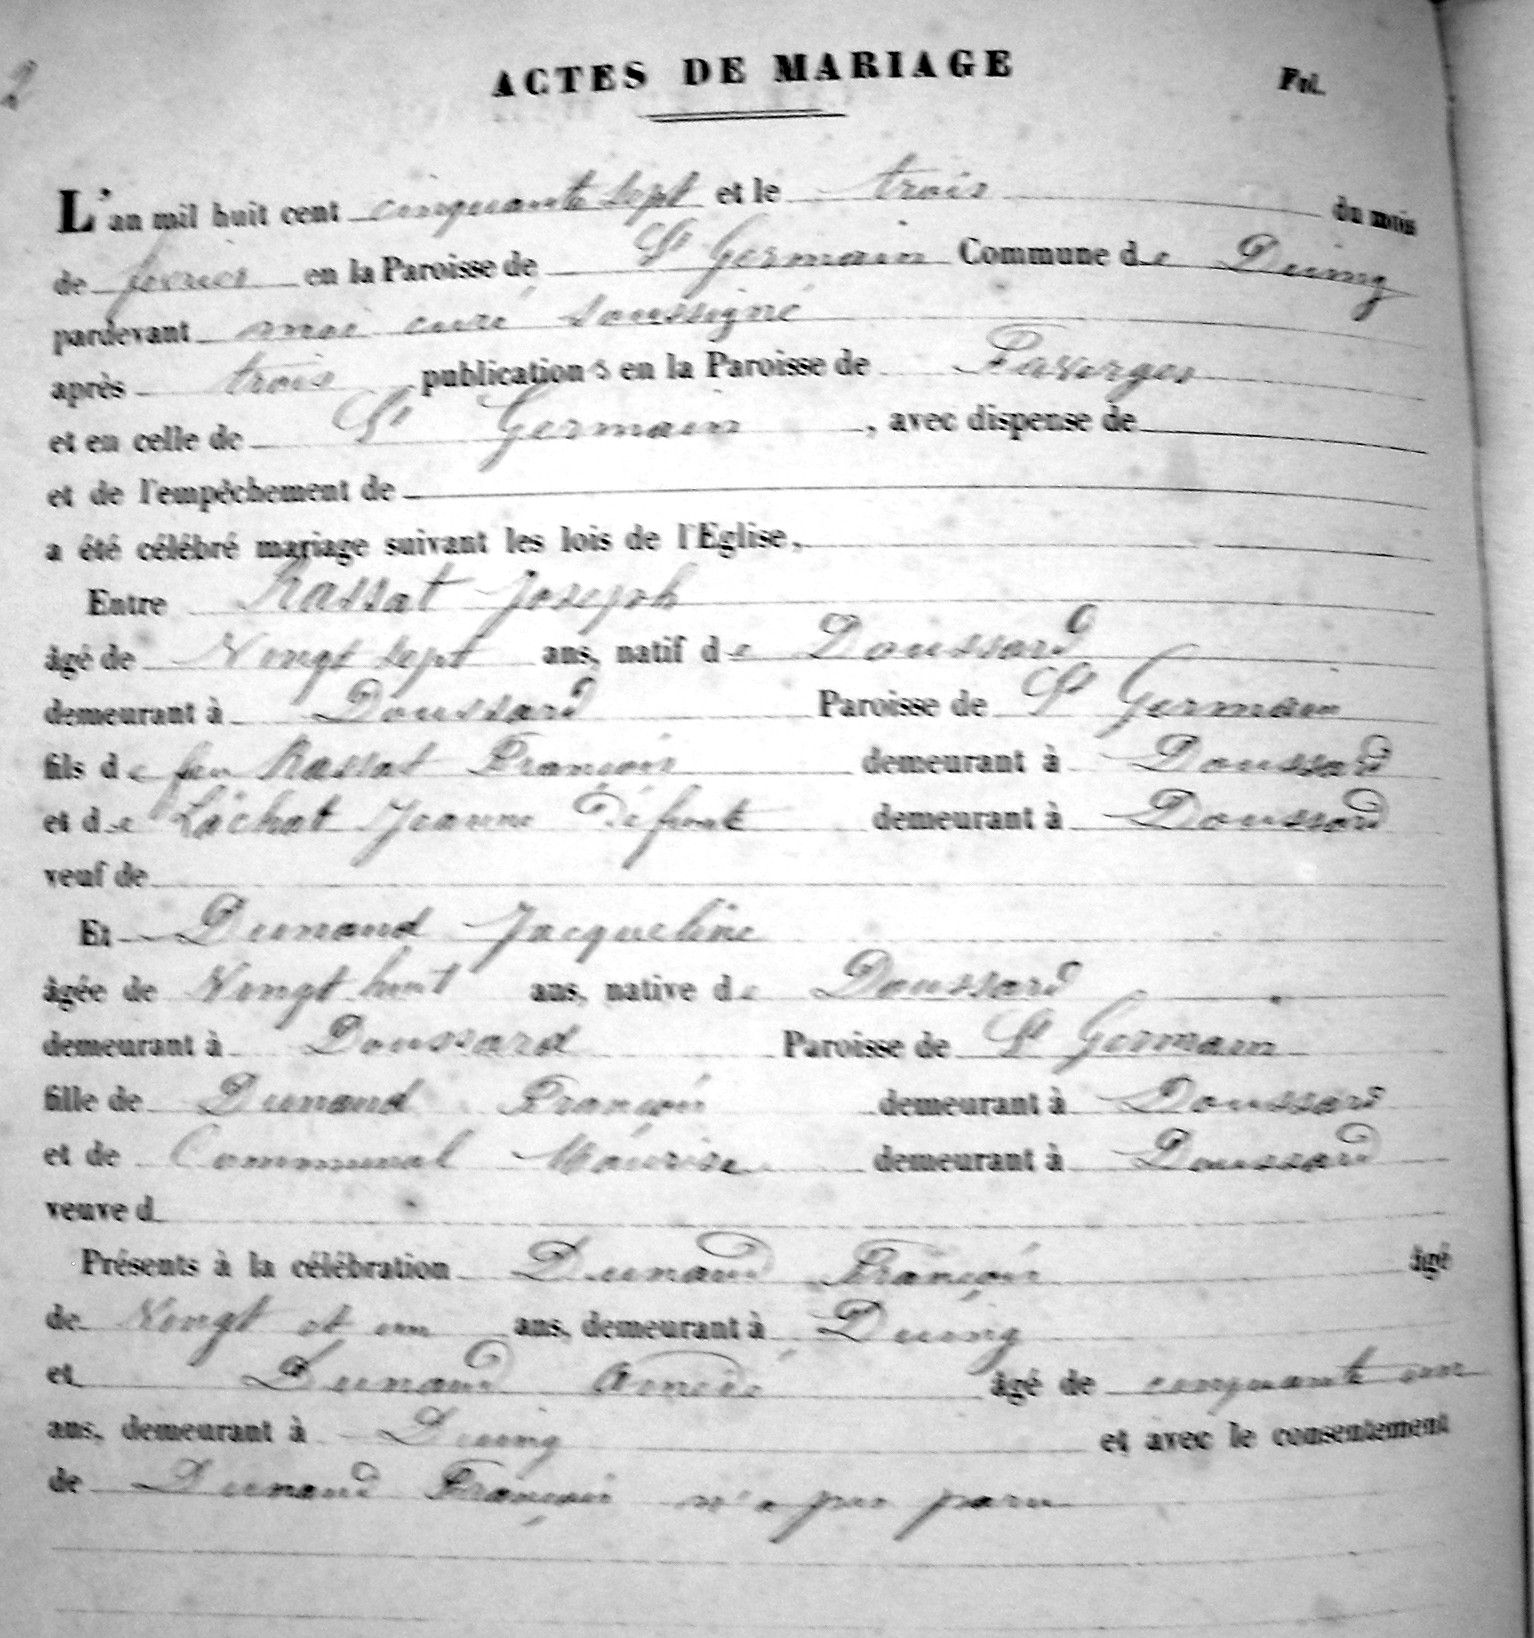 2
ACTES DE MARIAGE Fol.
L'an mil huit cent cinquante sept et le trois du mois
de fevrier en la Paroisse de St Germain Commune de Duing
pardevant moi curé soussigné
après trois publications en la Paroisse de Faverges
et en celle de St Germain , avec dispense de
et de l'empêchement de
a été célébré mariage suivant les lois de l'Eglise,
Entre Rassat Joseph
âgé de Vingt sept ans, natif de Doussard
demeurant à Doussard Paroisse de St Germain
fils de feu Rassat François demeurant à Doussard
et de Lachat Jeanne Défunte demeurant à Doussard
veuf de
Et Dunand Jacqueline
âgée de Vingt huit ans, native de Doussard
demeurant à Doussard Paroisse de St Germain
fille de Dunand François demeurant à Doussard
et de Communal Maurise demeurant à Doussard
veuve d
Présents à la célébration Dunand François âgé
de Vingt et un ans, demeurant à Duing
et Dunand Amédé âgé de cinquante un
ans, demeurant à Duing et avec le consentement
de Dunand François n'a pas paru